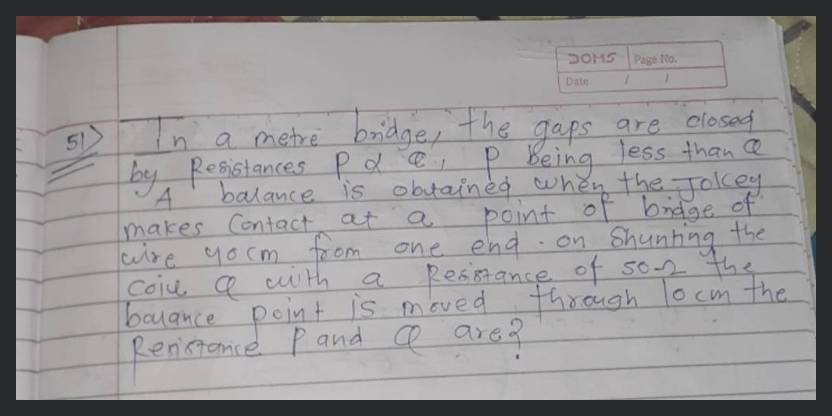 DOMS Page No.
Date / /
51) In a metre bridge, the gaps are closed
by Resistances P & Q, P being less than Q
A balance is obtained when the Jokey
makes Contact at a point of bridge of
wire 40 cm from one end. on Shunting the
Coil Q with a Resistance of 50Ω the
balance point is moved through 10 cm the
Resistance P and Q are?